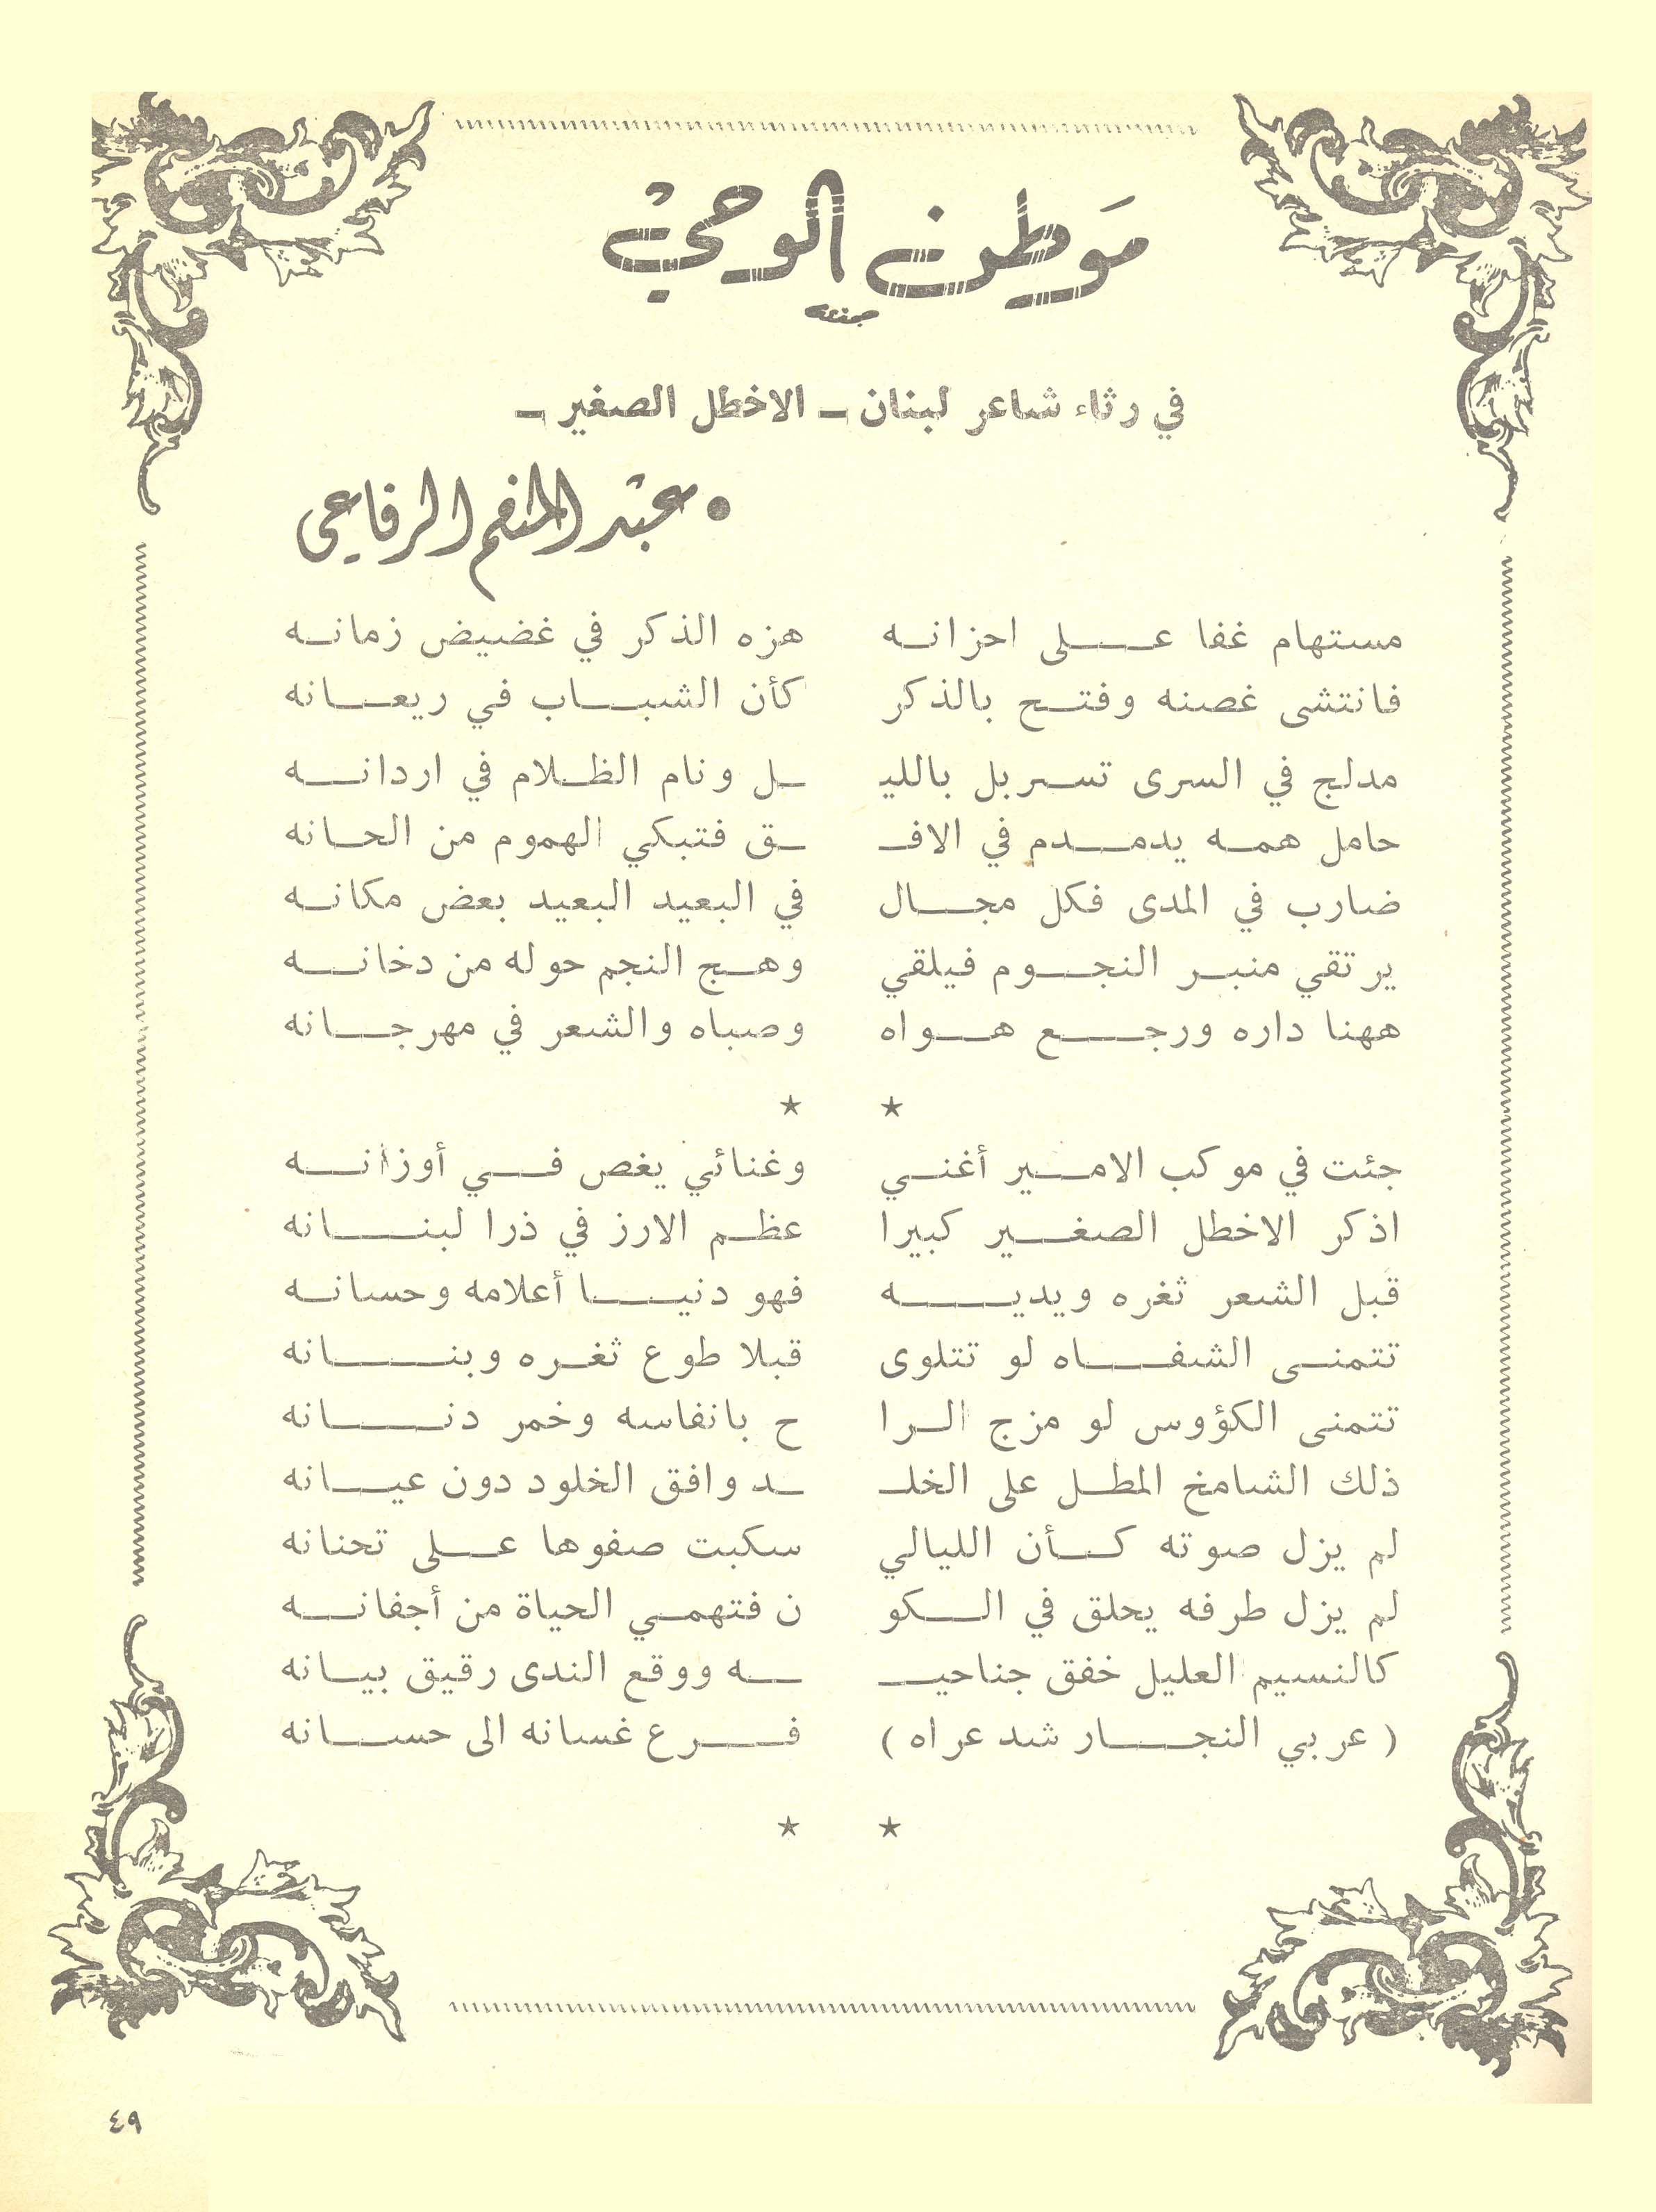 مَوطن الوحيْ
في رثاء شاعر لبنان ــ الاخطل الصغير ــ
• عبد المنعم الرفاعي
مستهام غفا عـــلى احزانـه هزه الذكر في غضيض زمانـه
فانتشى غصنه وفتـح بالذكر كأن الشبـاب في ريعـانه
مدلج في السرى تسـربل بالليـ ـل ونام الظـلام في اردانـه
حامل همـه يدمـدم في الافـ ـق فتبكي الهموم من الحـانه
ضارب في المدى فكل مجـال في البعيد البعيد بعض مكانـه
يرتقي منبـر النجـوم فيلقي وهـج النجم حوله من دخانـه
ههنا داره ورجـع هـواه وصباه والشعر في مهرجـانه
★ ★
جئت في موكب الامـير أغنـي وغنائي يغص فـي أوزانـه
اذكر الاخطل الصغـير كبيرا عظـم الارز في ذرا لبنـانه
قبل الشعر ثغره ويديـه فهو دنيـا أعلامه وحسانـه
تتمنـى الشفـاه لو تتلوى قبلا طوع ثغـره وبنـانه
تتمنى الكؤوس لو مزج الـرا ح بانفاسه وخمر دنـانه
ذلك الشامخ المطـل على الخلـ ـد وافق الخلود دون عيـانه
لم يزل صوته كـأن الليالي سكبت صفوها عـلى تحنانه
لم يزل طرفه يحلق في الـكو ن فتهمـي الحياة من أجفانـه
كالنسيم العليل خفق جناحيـ ـه ووقع الندى رقيق بيـانه
( عربي النجـار شد عراه ) فـرع غسانه الى حسـانه
★ ★
٤٩